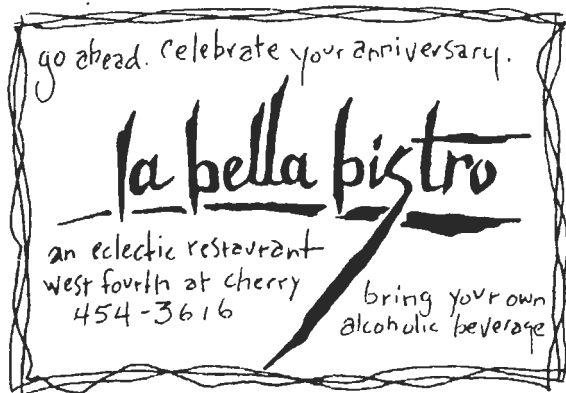 go ahead. celebrate your anniversary.
la bella bistro
an eclectic restaurant
west fourth at cherry
454-3616
bring your own
alcoholic beverage